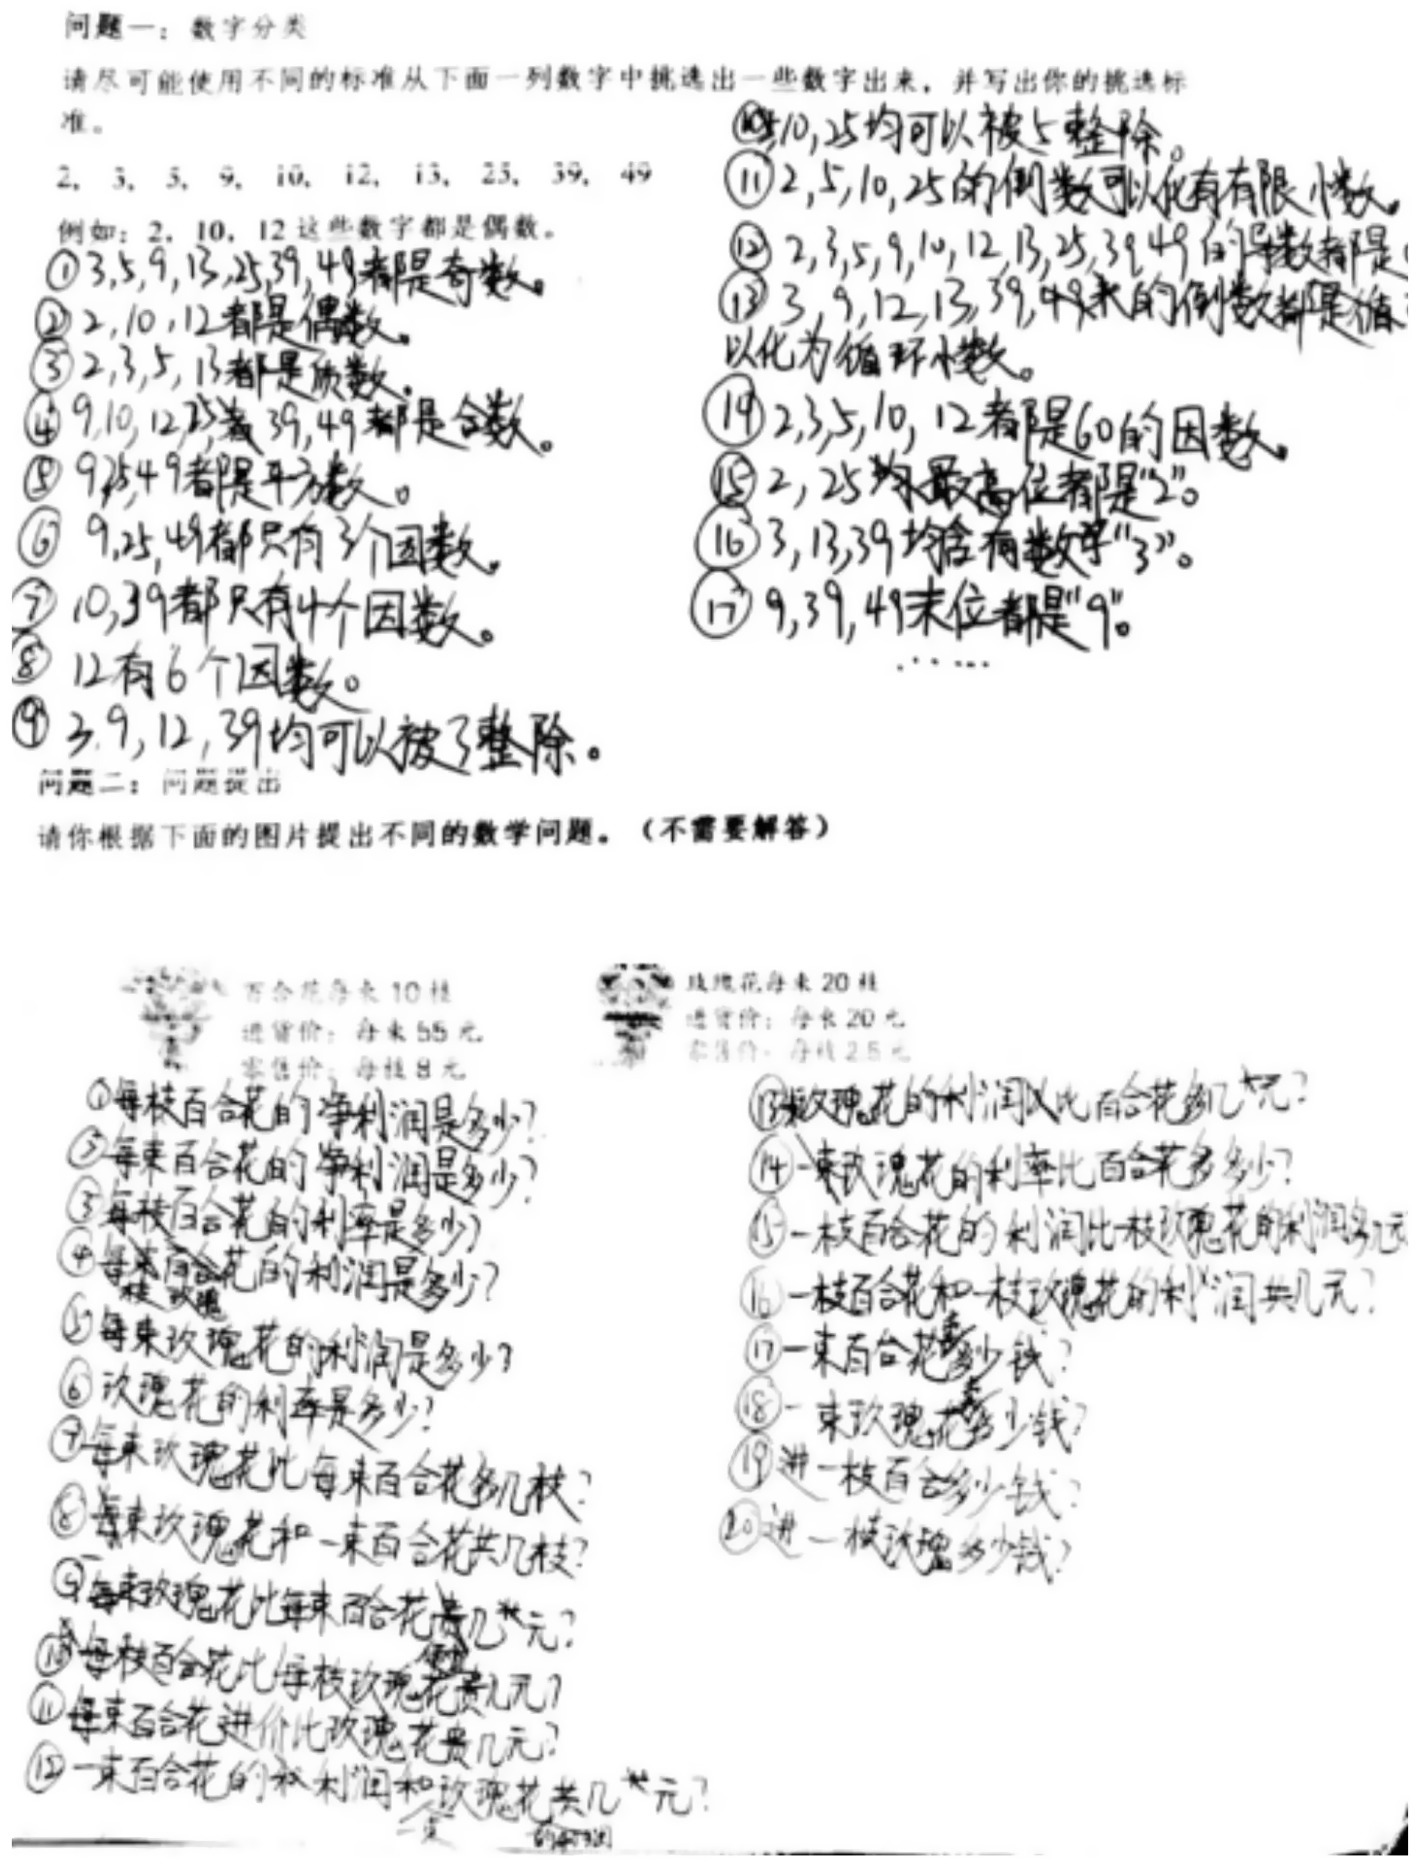 问题一：数字分类
请尽可能使用不同的标准从下面一列数字中挑选出一些数字出来，并写出你的挑选标
准。
2, 3, 5, 9, 10, 12, 13, 25, 39, 49
例如：2, 10, 12这些数字都是偶数。
①3,5,9,13,25,39,49都是奇数。
②2,10,12都是偶数。
③2,3,5,13都是质数。
④9,10,12,25,39,49都是合数。
⑤9,25,49都是平方数。
⑥9,25,49都只有3个因数。
⑦10,39都只有4个因数。
⑧12有6个因数。
⑨3,9,12,39均可以被3整除。
⑩5,10,25均可以被5整除。
⑪2,5,10,25的倒数可以化有有限小数。
⑫2,3,5,9,10,12,13,25,39,49的导数都是
⑬3,9,12,13,39,49的倒数都是循
以化为循环小数。
⑭2,3,5,10,12都是60的因数。
⑮2,25最高位都是“2”。
⑯3,13,39均含有数字“3”。
⑰9,39,49末位都是“9”。
......
问题二：问题提出
请你根据下面的图片提出不同的数学问题。（不需要解答）
百合花每束10枝
进货价：每束55元
零售价：每枝8元
玫瑰花每束20枝
进货价：每束20元
零售价：每枝2.5元
①每枝百合花的净利润是多少？
②每束百合花的净利润是多少？
③每枝百合花的利率是多少？
④每枝玫瑰花的利润是多少？
⑤每束玫瑰花的利润是多少？
⑥玫瑰花的利率是多少？
⑦每束玫瑰花比每束百合花多几枝？
⑧每束玫瑰花和一束百合花共几枝？
⑨每束玫瑰花比每束百合花贵几元？
⑩每枝百合花比每枝玫瑰花贵几元？
⑪每束百合花进价比玫瑰花贵几元？
⑫一束百合花的利润和一束玫瑰花的利润共几元？
⑬玫瑰花的利润比百合花多几元？
⑭一束玫瑰花的利率比百合花多多少？
⑮一枝百合花的利润比一枝玫瑰花的利润多几元
⑯一枝百合花和一枝玫瑰花的利润共几元？
⑰一束百合花卖多少钱？
⑱一束玫瑰花卖多少钱？
⑲进一枝百合多少钱？
⑳进一枝玫瑰多少钱？